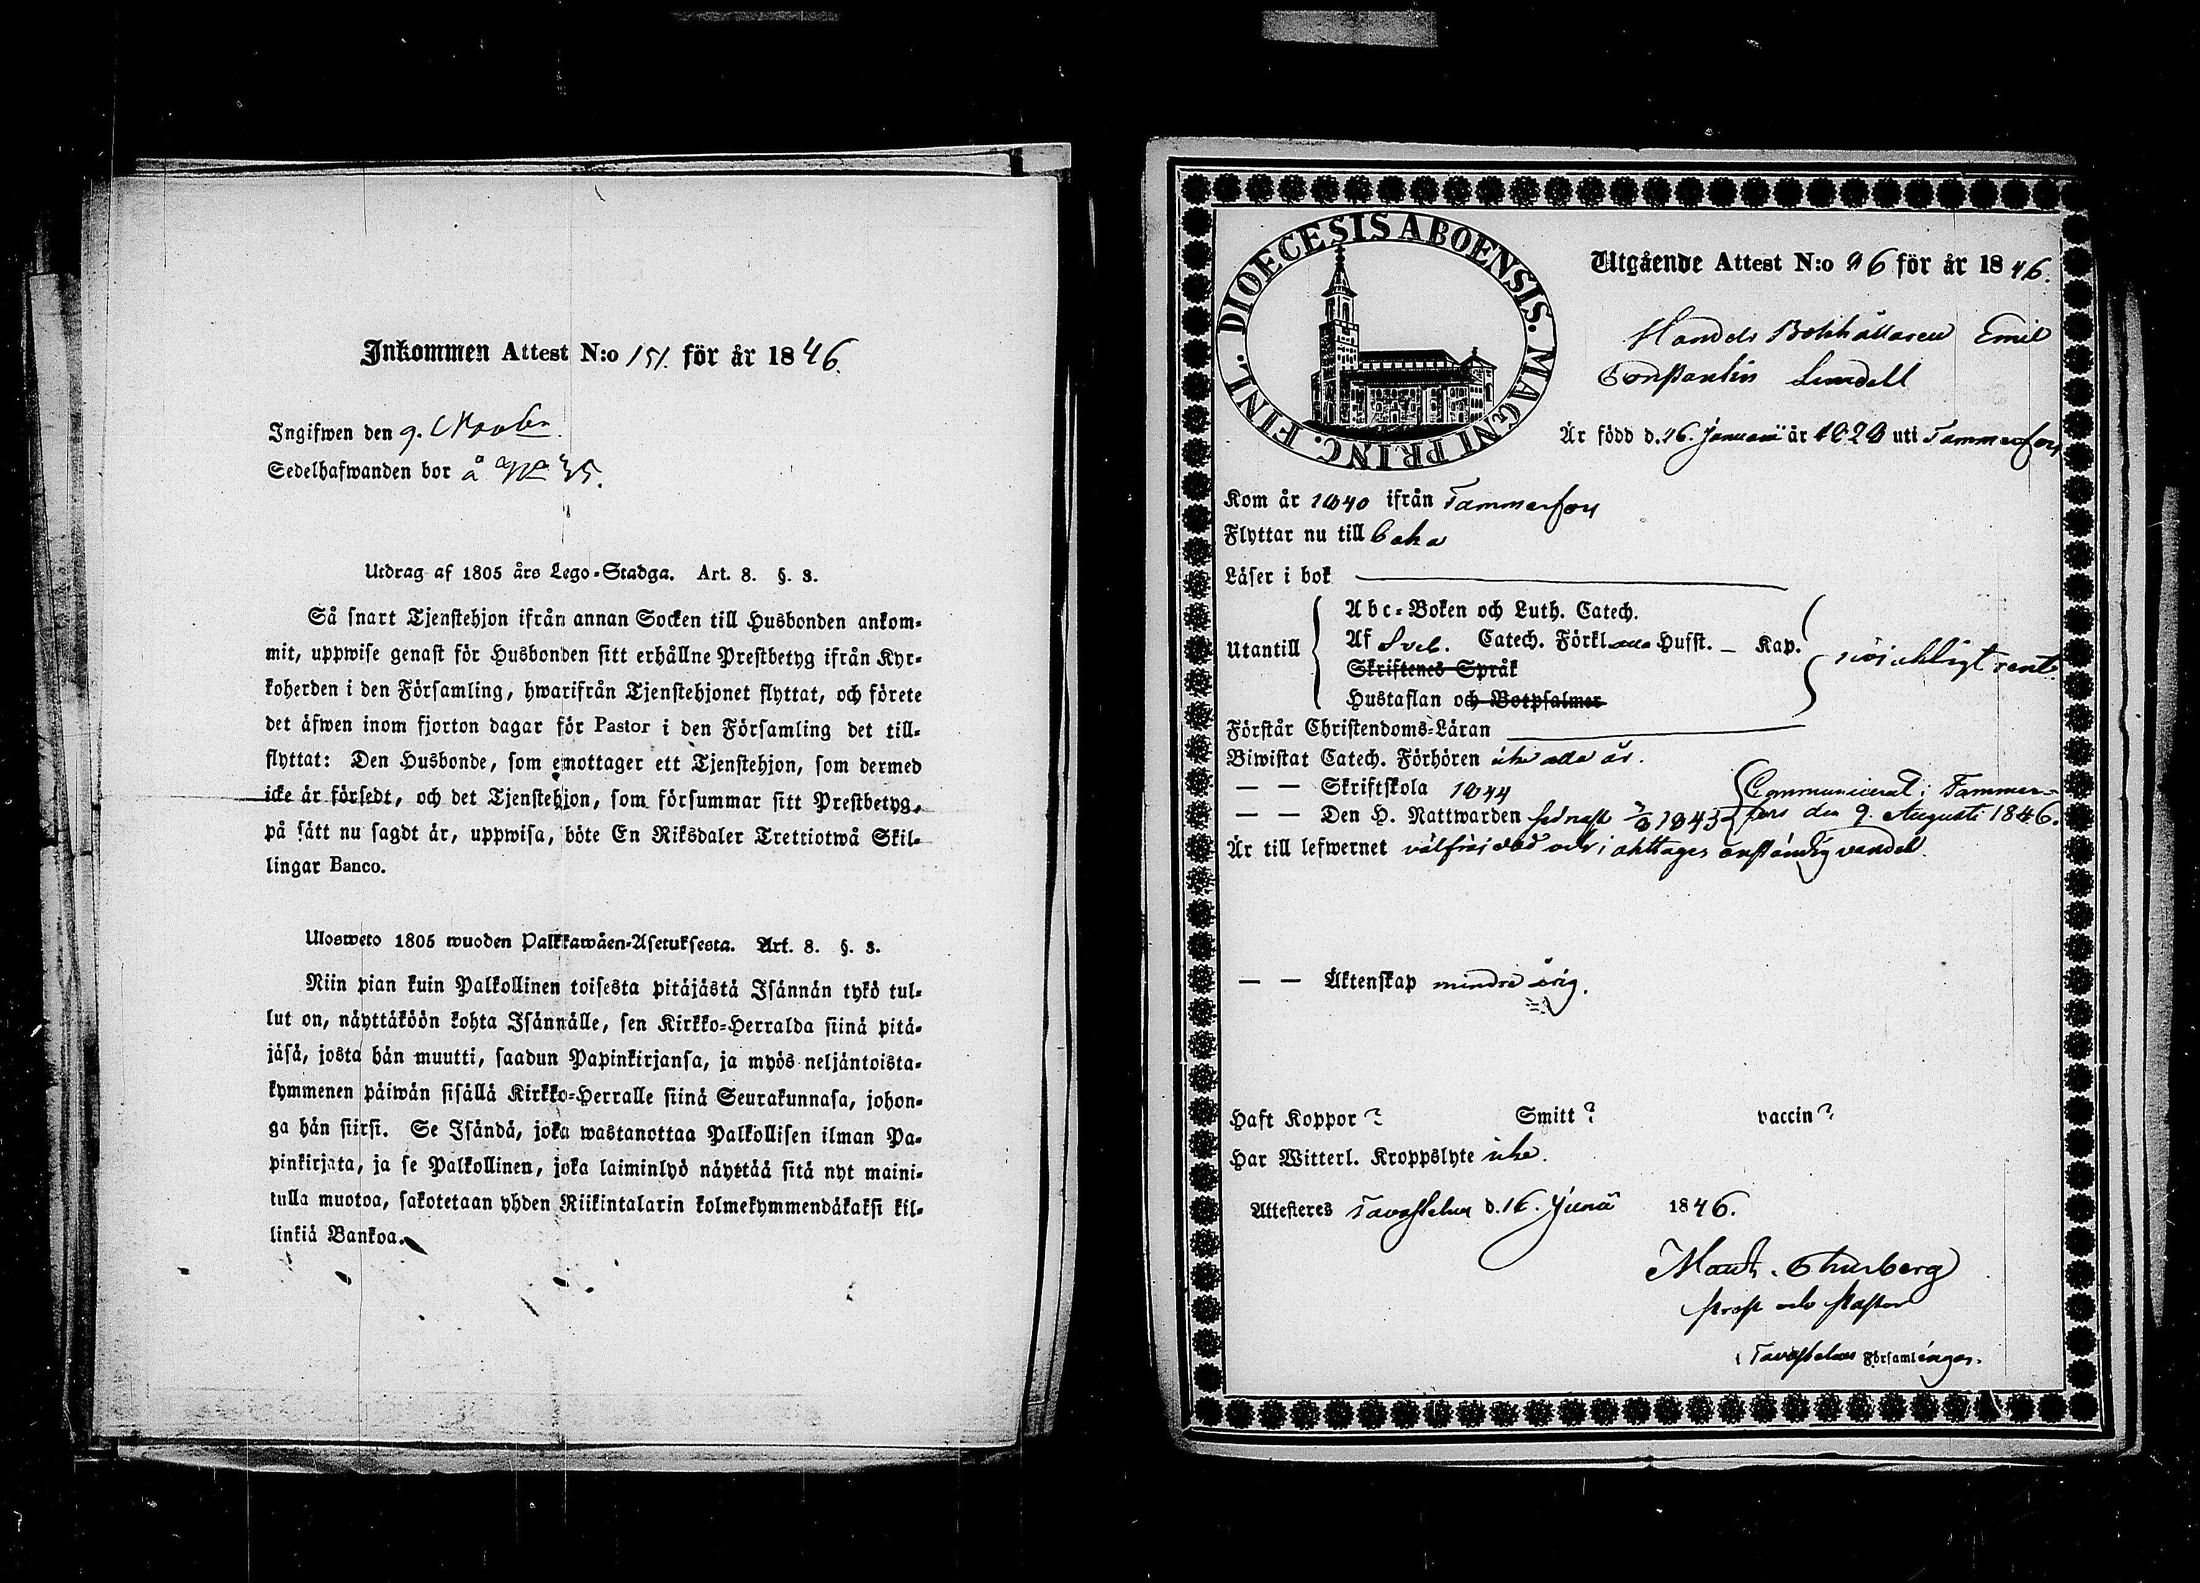 Inkommen Attest N:o 151. för år 1846.
Ingifwen den 9. Novber
Sedelhafwanden bor å No 35.
Utdrag af 1805 års Lego-Stadga. Art. 8. §. 3.
Så snart Tjenstehjon ifrån annan Socken till Husbonden ankom-
mit, uppwise genast för Husbonden sitt erhållne Prestbetyg ifrån Kyr-
koherden i den Församling, hwarifrån Tjenstehjonet flyttat, och förete
det äfwen inom fjorton dagar för Pastor i den Församling det till-
flyttat: Den Husbonde, som emottager ett Tjenstehjon, som dermed
icke är försedt, och det Tjenstehjon, som försummar sitt Prestbetyg,
på sätt nu sagdt är, uppwisa, böte En Riksdaler Trettiotwå Skil-
lingar Banco.
Ulosweto 1805 wuoden Palkkawäen-Asetuksesta. Art. 8. §. 3.
Niin pian kuin Palkollinen toisesta pitäjästä Isännän tykö tul-
lut on, näyttäköön kohta Isännälle, sen Kirkko-Herralda siinä pitä-
jäsä, josta hän muutti, saadun Papinkirjansa, ja myös neljäntoista-
kymmenen päiwän sisällä Kirkko-Herralle siinä Seurakunnasa, johon-
ga hän siirsi. Se Isändä, joka wastanottaa Palkollisen ilman Pa-
pinkirjata, ja se Palkollinen, joka laiminlyö näyttää sitä nyt maini-
tulla muotoa, sakotetaan yhden Riikintalarin kolmekymmendäkaksi kil-
linkiä Bankoa.
DIOECESIS ABOENSIS. MAGNI PRINC. FINL.
Utgående Attest N:o 96 för år 1846.
Handels Bokhållaren Emil
Constantin Lundell
Är född d. 16. Januarii år 1828 uti Tammerfors
Kom år 1840 ifrån Tammerfors
Flyttar nu till
Läser i bok
Utantill
Abc-Boken och Luth. Catech.
Af Sveb. Catech. Förkl. alla Husst. – Kap.
Skriftenes Språk
Hustaflan och Botpsalmer
Förstår Christendoms-Läran
Biwistat Catech. Förhören icke alla år.
— — Skriftskola 1844
— — Den H. Nattwarden sednast 1845
Communicerat i Tammer-
fors den 9. Augusti 1846.
Är till lefwernet välfräjdad och iakttager anständig vandel.
— — Äktenskap mindre årig.
Haft Koppor? Smitt? vaccin?
Har Witterl. Kroppslyte icke.
Attesteres Tavastehus d. 16. Junii 1846.
Thurberg
Prost och Pastor
i Tavastehus Församlingar.